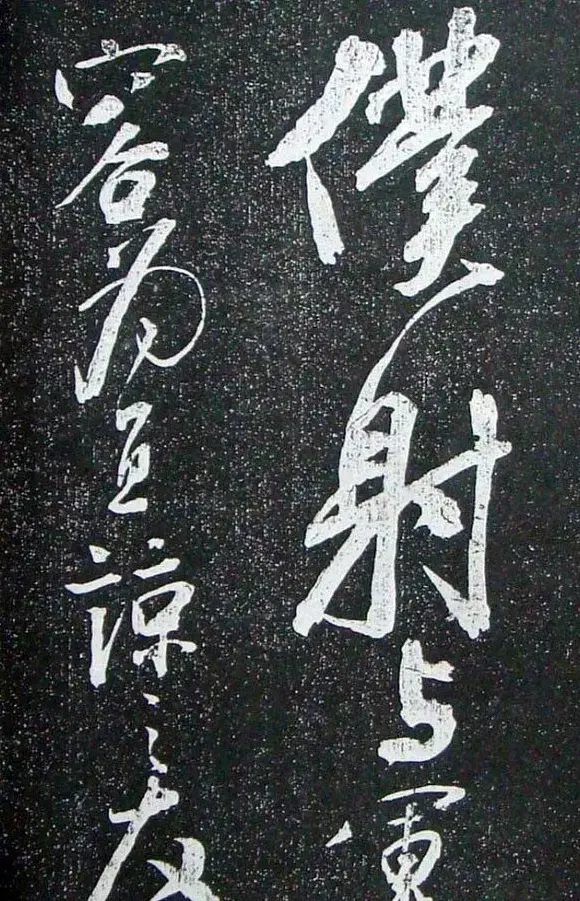 僕射与軍
容為直諒之友